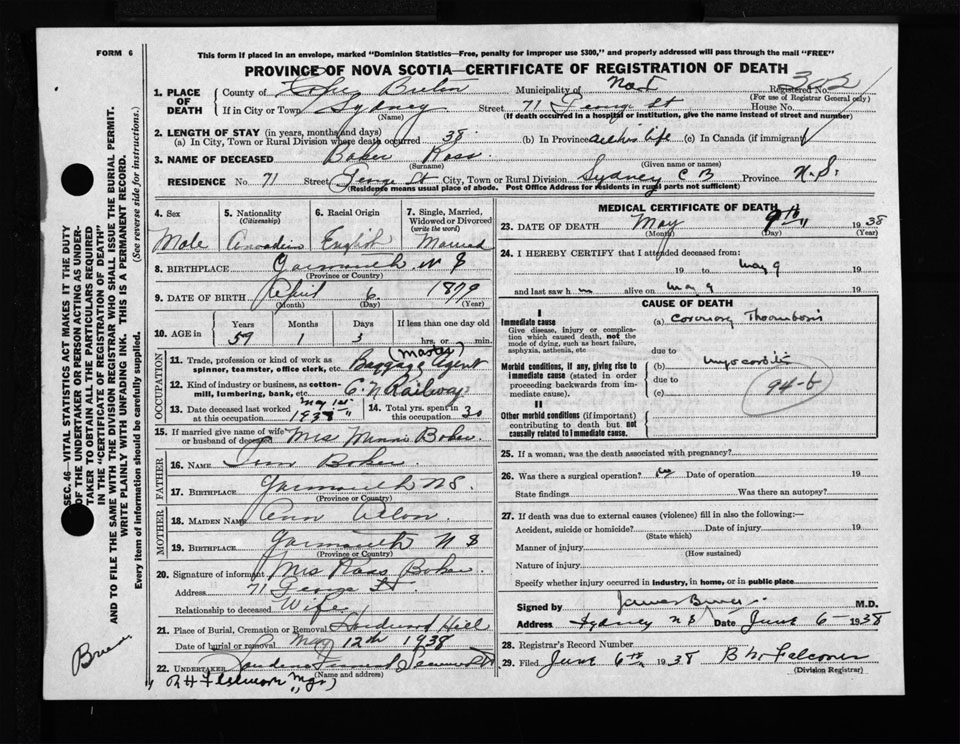 FORM 6
This form if placed in an envelope, marked "Dominion Statistics—Free, penalty for improper use $300," and properly addressed will pass through the mail "FREE"
PROVINCE OF NOVA SCOTIA—CERTIFICATE OF REGISTRATION OF DEATH
1. PLACE OF DEATH
County of Cape Breton Municipality of Registered No. 302
(For use of Registrar General only)
If in City or Town Sydney Street 71 George St House No.
(Name) (If death occurred in a hospital or institution, give the name instead of street and number)
2. LENGTH OF STAY (in years, months and days)
(a) In City, Town or Rural Division where death occurred 38 (b) In Province all his life (c) In Canada (if immigrant)
3. NAME OF DECEASED Baker Ross
(Surname) (Given name or names)
RESIDENCE No. 71 Street George St City, Town or Rural Division Sydney C B Province N.S.
(Residence means usual place of abode. Post Office Address for residents in rural parts not sufficient)
4. Sex Male
5. Nationality (Citizenship) Canadian
6. Racial Origin English
7. Single, Married, Widowed or Divorced (write the word) Married
8. BIRTHPLACE Yarmouth N S
(Province or Country)
9. DATE OF BIRTH April 6 1879
(Month) (Day) (Year)
10. AGE in Years 59 Months 1 Days 3 If less than one day old hrs. or min.
OCCUPATION
11. Trade, profession or kind of work as spinner, teamster, office clerk, etc. Baggage (Master) Agent
12. Kind of industry or business, as cotton-mill, lumbering, bank, etc. C. N Railway
13. Date deceased last worked at this occupation May 1st 1938
14. Total yrs. spent in this occupation 30
15. If married give name of wife or husband of deceased Mrs Minnie Baker
FATHER
16. NAME Baker
17. BIRTHPLACE Yarmouth N S
(Province or Country)
MOTHER
18. MAIDEN NAME Ann
19. BIRTHPLACE Yarmouth N S
(Province or Country)
20. Signature of informant Mrs Ross Baker
Address 71 George St.
Relationship to deceased Wife
21. Place of Burial, Cremation or Removal Hardwood Hill
Date of burial or removal May 12th 1938
22. UNDERTAKER Funeral
(Name and address)
Mgr)
MEDICAL CERTIFICATE OF DEATH
23. DATE OF DEATH May 9th 1938
(Month) (Day) (Year)
24. I HEREBY CERTIFY that I attended deceased from:
19 to May 9 19
and last saw h m alive on May 9 19
CAUSE OF DEATH
I
Immediate cause
Give disease, injury or complication which caused death, not the mode of dying, such as heart failure, asphyxia, asthenia, etc
(a) Coronary Thrombosis
due to
Morbid conditions, if any, giving rise to immediate cause (stated in order proceeding backwards from immediate cause).
(b) myocarditis
due to
(c)
94-b
II
Other morbid conditions (if important) contributing to death but not causally related to immediate cause.
25. If a woman, was the death associated with pregnancy?
26. Was there a surgical operation? Date of operation 19
State findings Was there an autopsy?
27. If death was due to external causes (violence) fill in also the following:—
Accident, suicide or homicide? Date of injury 19
(State which)
Manner of injury
(How sustained)
Nature of injury
Specify whether injury occurred in industry, in home, or in public place
Signed by James M.D.
Address Sydney N S Date June 6 — 1938
28. Registrar's Record Number
29. Filed June 6th 1938 Falconer
(Division Registrar)
SEC. 46—VITAL STATISTICS ACT MAKES IT THE DUTY
OF THE UNDERTAKER OR PERSON ACTING AS UNDERTAKER TO OBTAIN ALL THE PARTICULARS REQUIRED
IN THE "CERTIFICATE OF REGISTRATION OF DEATH"
AND TO FILE THE SAME WITH THE DIVISION REGISTRAR WHO SHALL ISSUE THE BURIAL PERMIT.
WRITE PLAINLY WITH UNFADING INK. THIS IS A PERMANENT RECORD.
Every item of information should be carefully supplied. (See reverse side for instructions.)